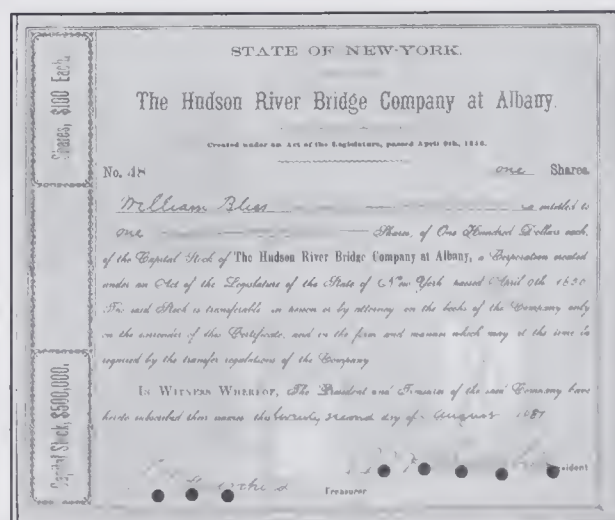 Shares, $100 Each.
Capital Stock, $500,000.
STATE OF NEW-YORK.
The Hudson River Bridge Company at Albany.
Created under an Act of the Legislature, passed April 9th, 1856.
No. 48 one Shares.
William Bliss is entitled to
one Shares, of One Hundred Dollars each,
of the Capital Stock of The Hudson River Bridge Company at Albany, a Corporation created
under an Act of the Legislature of the State of New York passed April 9th 1856
The said Stock is transferable in person or by attorney on the books of the Company only
on the surrender of this Certificate, and in the form and manner which may at the time be
required by the transfer regulations of the Company
IN WITNESS WHEREOF, The President and Treasurer of the said Company have
hereto subscribed their names this twenty second day of August 1887
President
Treasurer